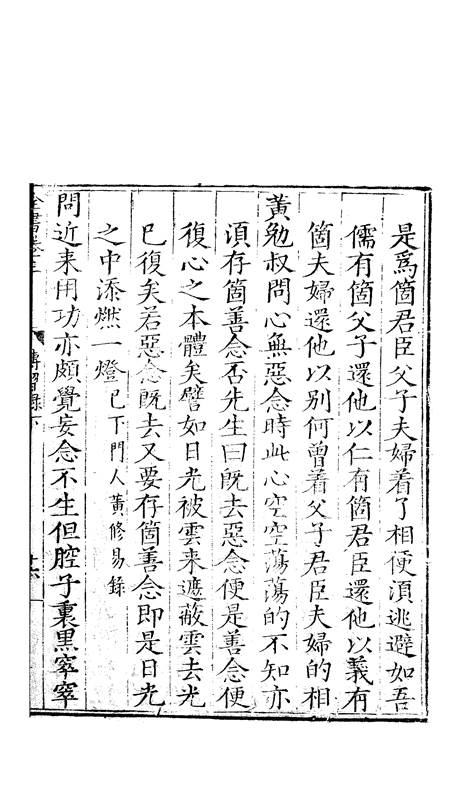 是爲箇君臣父子夫婦着了相便湏逃避如吾
儒有箇父子還他以仁有箇君臣還他以義有
箇夫婦還他以别何曾着父子君臣夫婦的相
黃勉叔問心無惡念時此心空空蕩蕩的不知亦
湏存箇善念否先生曰旣去惡念便是善念便
復心之本體矣譬如日光被雲来遮蔽雲去光
已復矣若惡念旣去又要存箇善念即是日光
之中添燃一燈已下門人黃修易錄
問近来用功亦頗覺妄念不生但腔子裏黑窣窣
全書卷三
傳習錄下